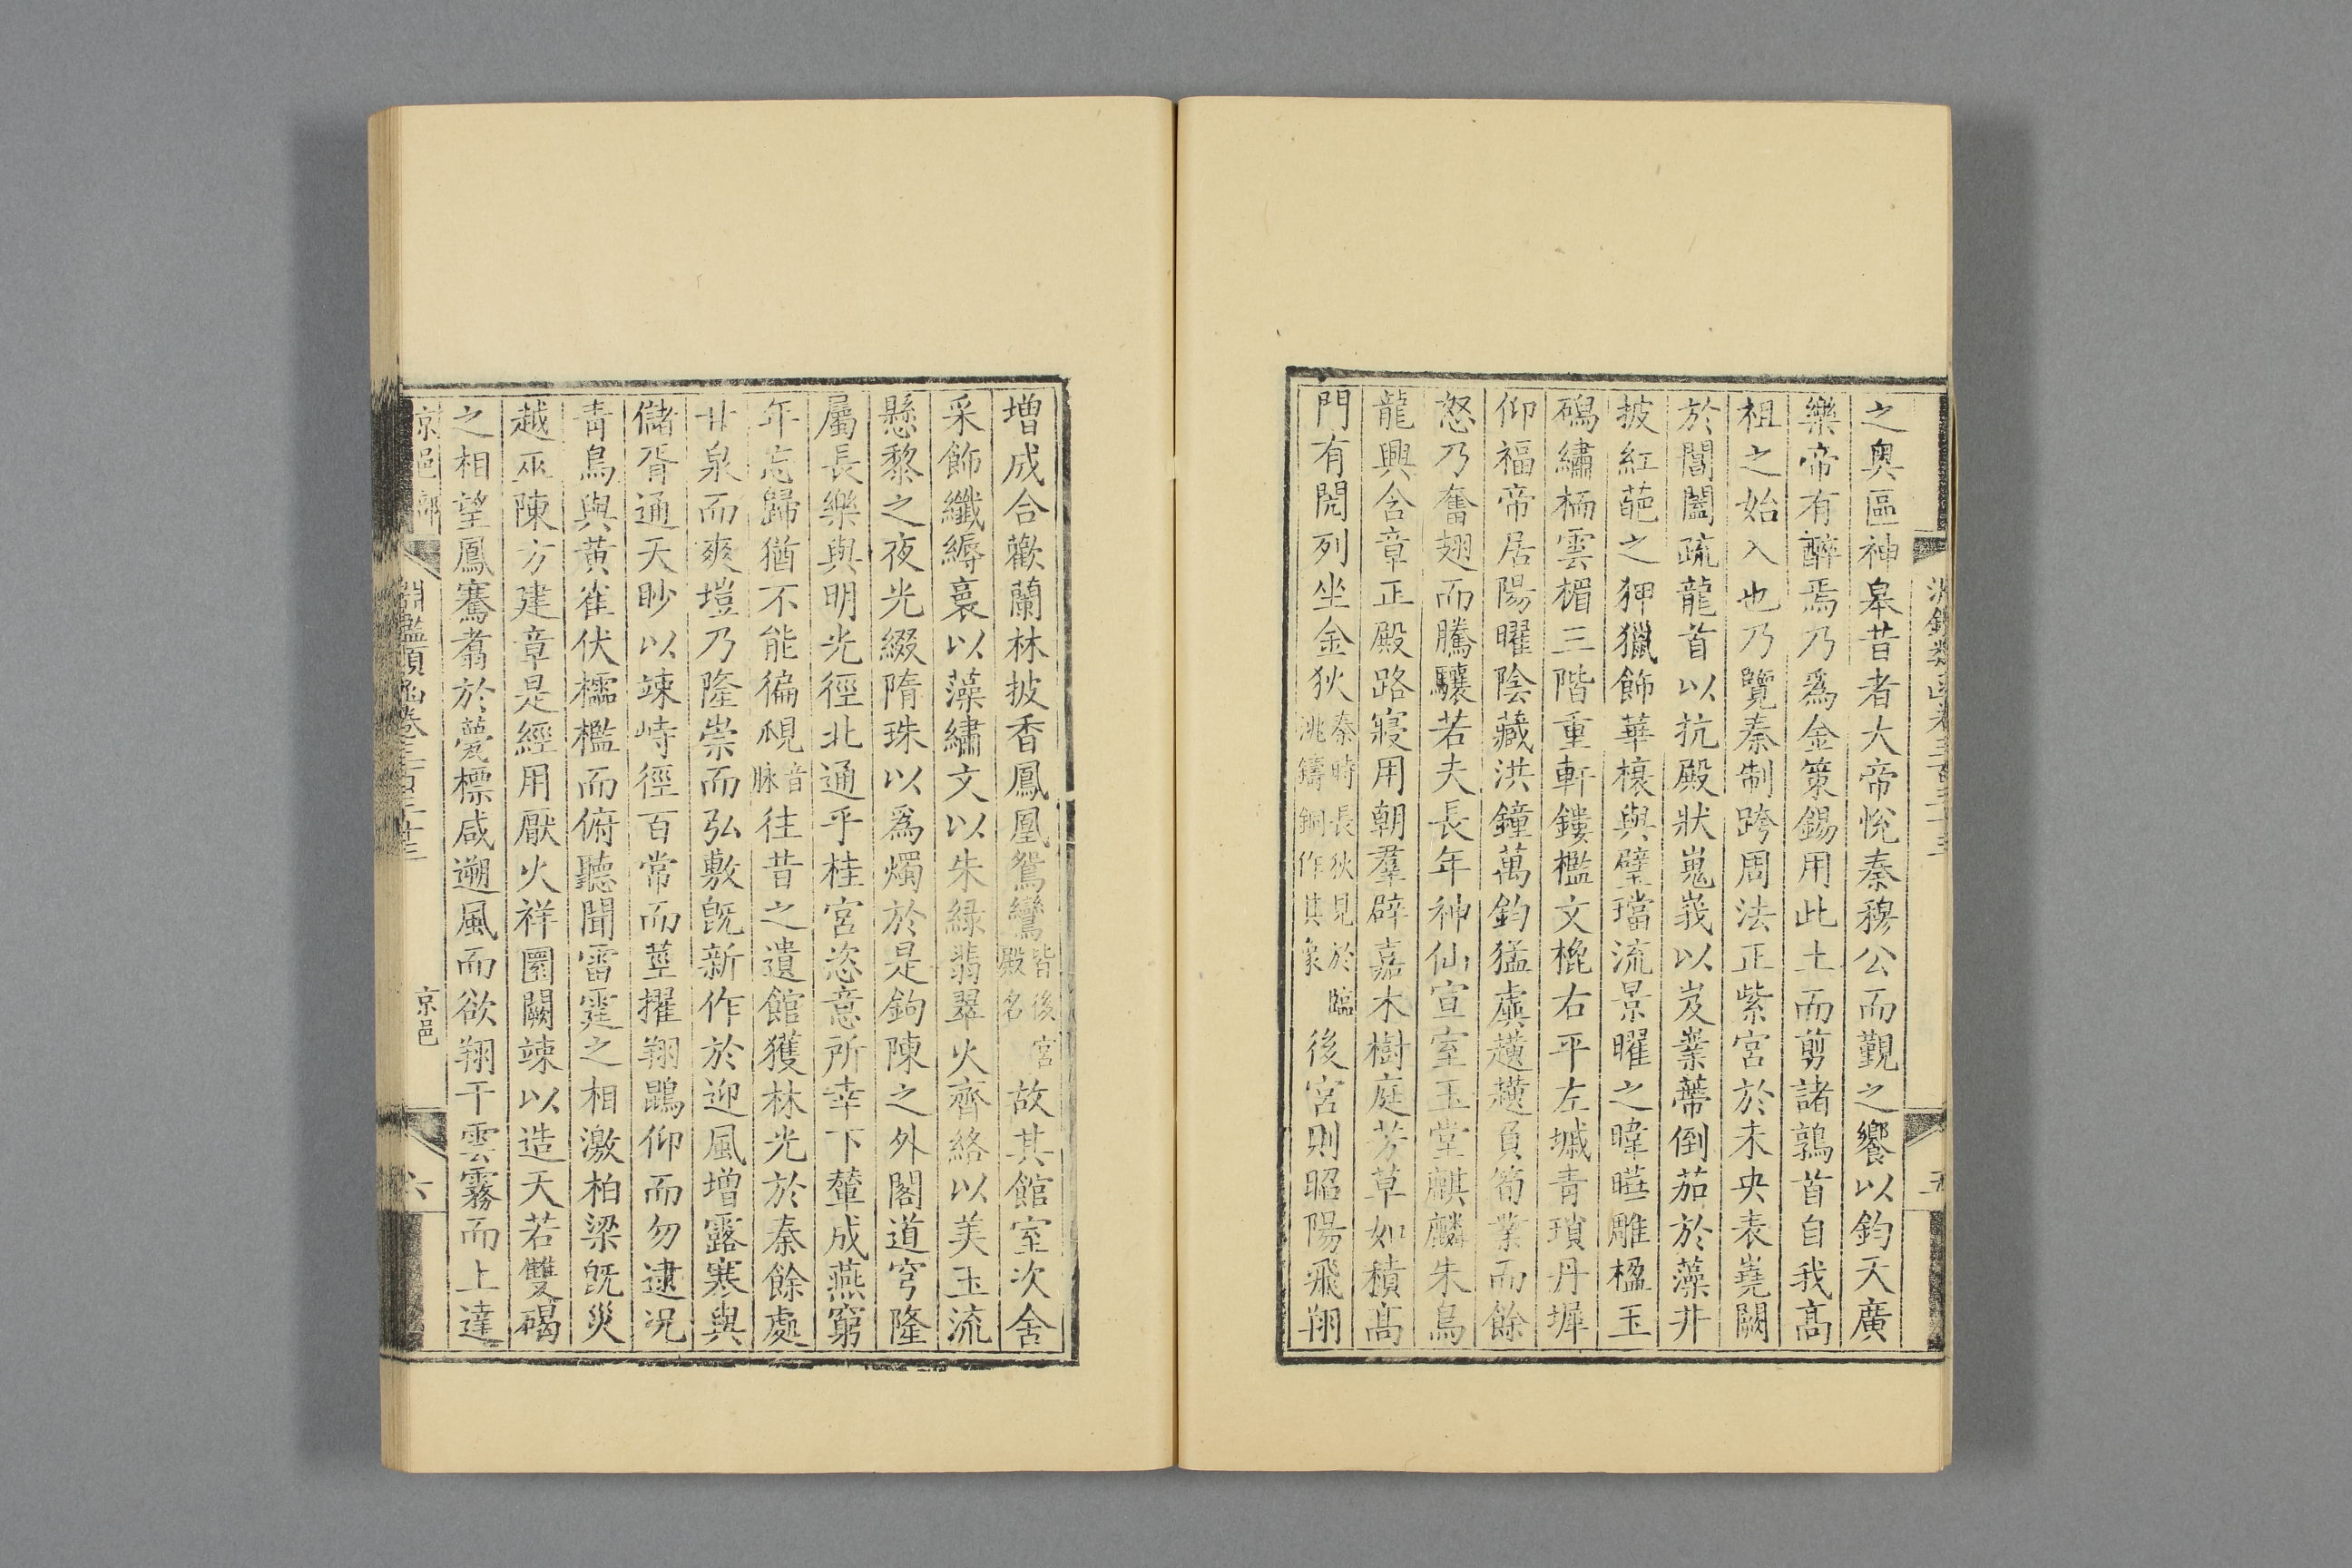 之奧區神皋昔者大帝悅秦穆公而覲之饗以鈞天廣
樂帝有醉焉乃爲金策錫用此土而剪諸鶉首自我高
祖之始入也乃覽秦制跨周法正紫宮於未央表嶤闕
於閶闔疏龍首以抗殿狀嵬峩以岌嶪蔕倒茄於藻井
披紅葩之狎獵飾華榱與璧璫流景曜之暐曄雕楹玉
磶繡栭雲楣三階重軒鏤檻文㮰右平左墄青瑣丹墀
仰福帝居陽曜陰藏洪鐘萬鈞猛虡趪趪負筍業而餘
怒乃奮翅而騰驤若夫長年神仙宣室玉堂麒麟朱鳥
龍興含章正殿路寢用朝羣辟嘉木樹庭芳草如積高
門有閌列坐金狄秦時長狄見於臨洮鑄銅作其象後宮則昭陽飛翔
增成合歡蘭林披香鳳凰鴛鸞皆後宮殿名故其館室次舍
采飾纖縟裛以藻繡文以朱緑翡翠火齊絡以美玉流
懸黎之夜光綴隋珠以爲燭於是鈎陳之外閣道穹隆
屬長樂與明光徑北通乎桂宮恣意所幸下輦成燕窮
年忘歸猶不能徧覛音脉往昔之遺館獲林光於秦餘處
甘泉而爽塏乃隆崇而弘敷旣新作於迎風增露寒與
儲胥通天眇以竦峙徑百常而莖擢翔鶤仰而勿逮况
青鳥與黃雀伏櫺檻而俯聽聞雷霆之相激柏梁旣災
越巫陳方建章是經用厭火祥圜闕竦以造天若雙碣
之相望鳳騫翥於甍標咸遡風而欲翔干雲霧而上達
京邑部
淵鑑類函卷三百三十三
京邑
六